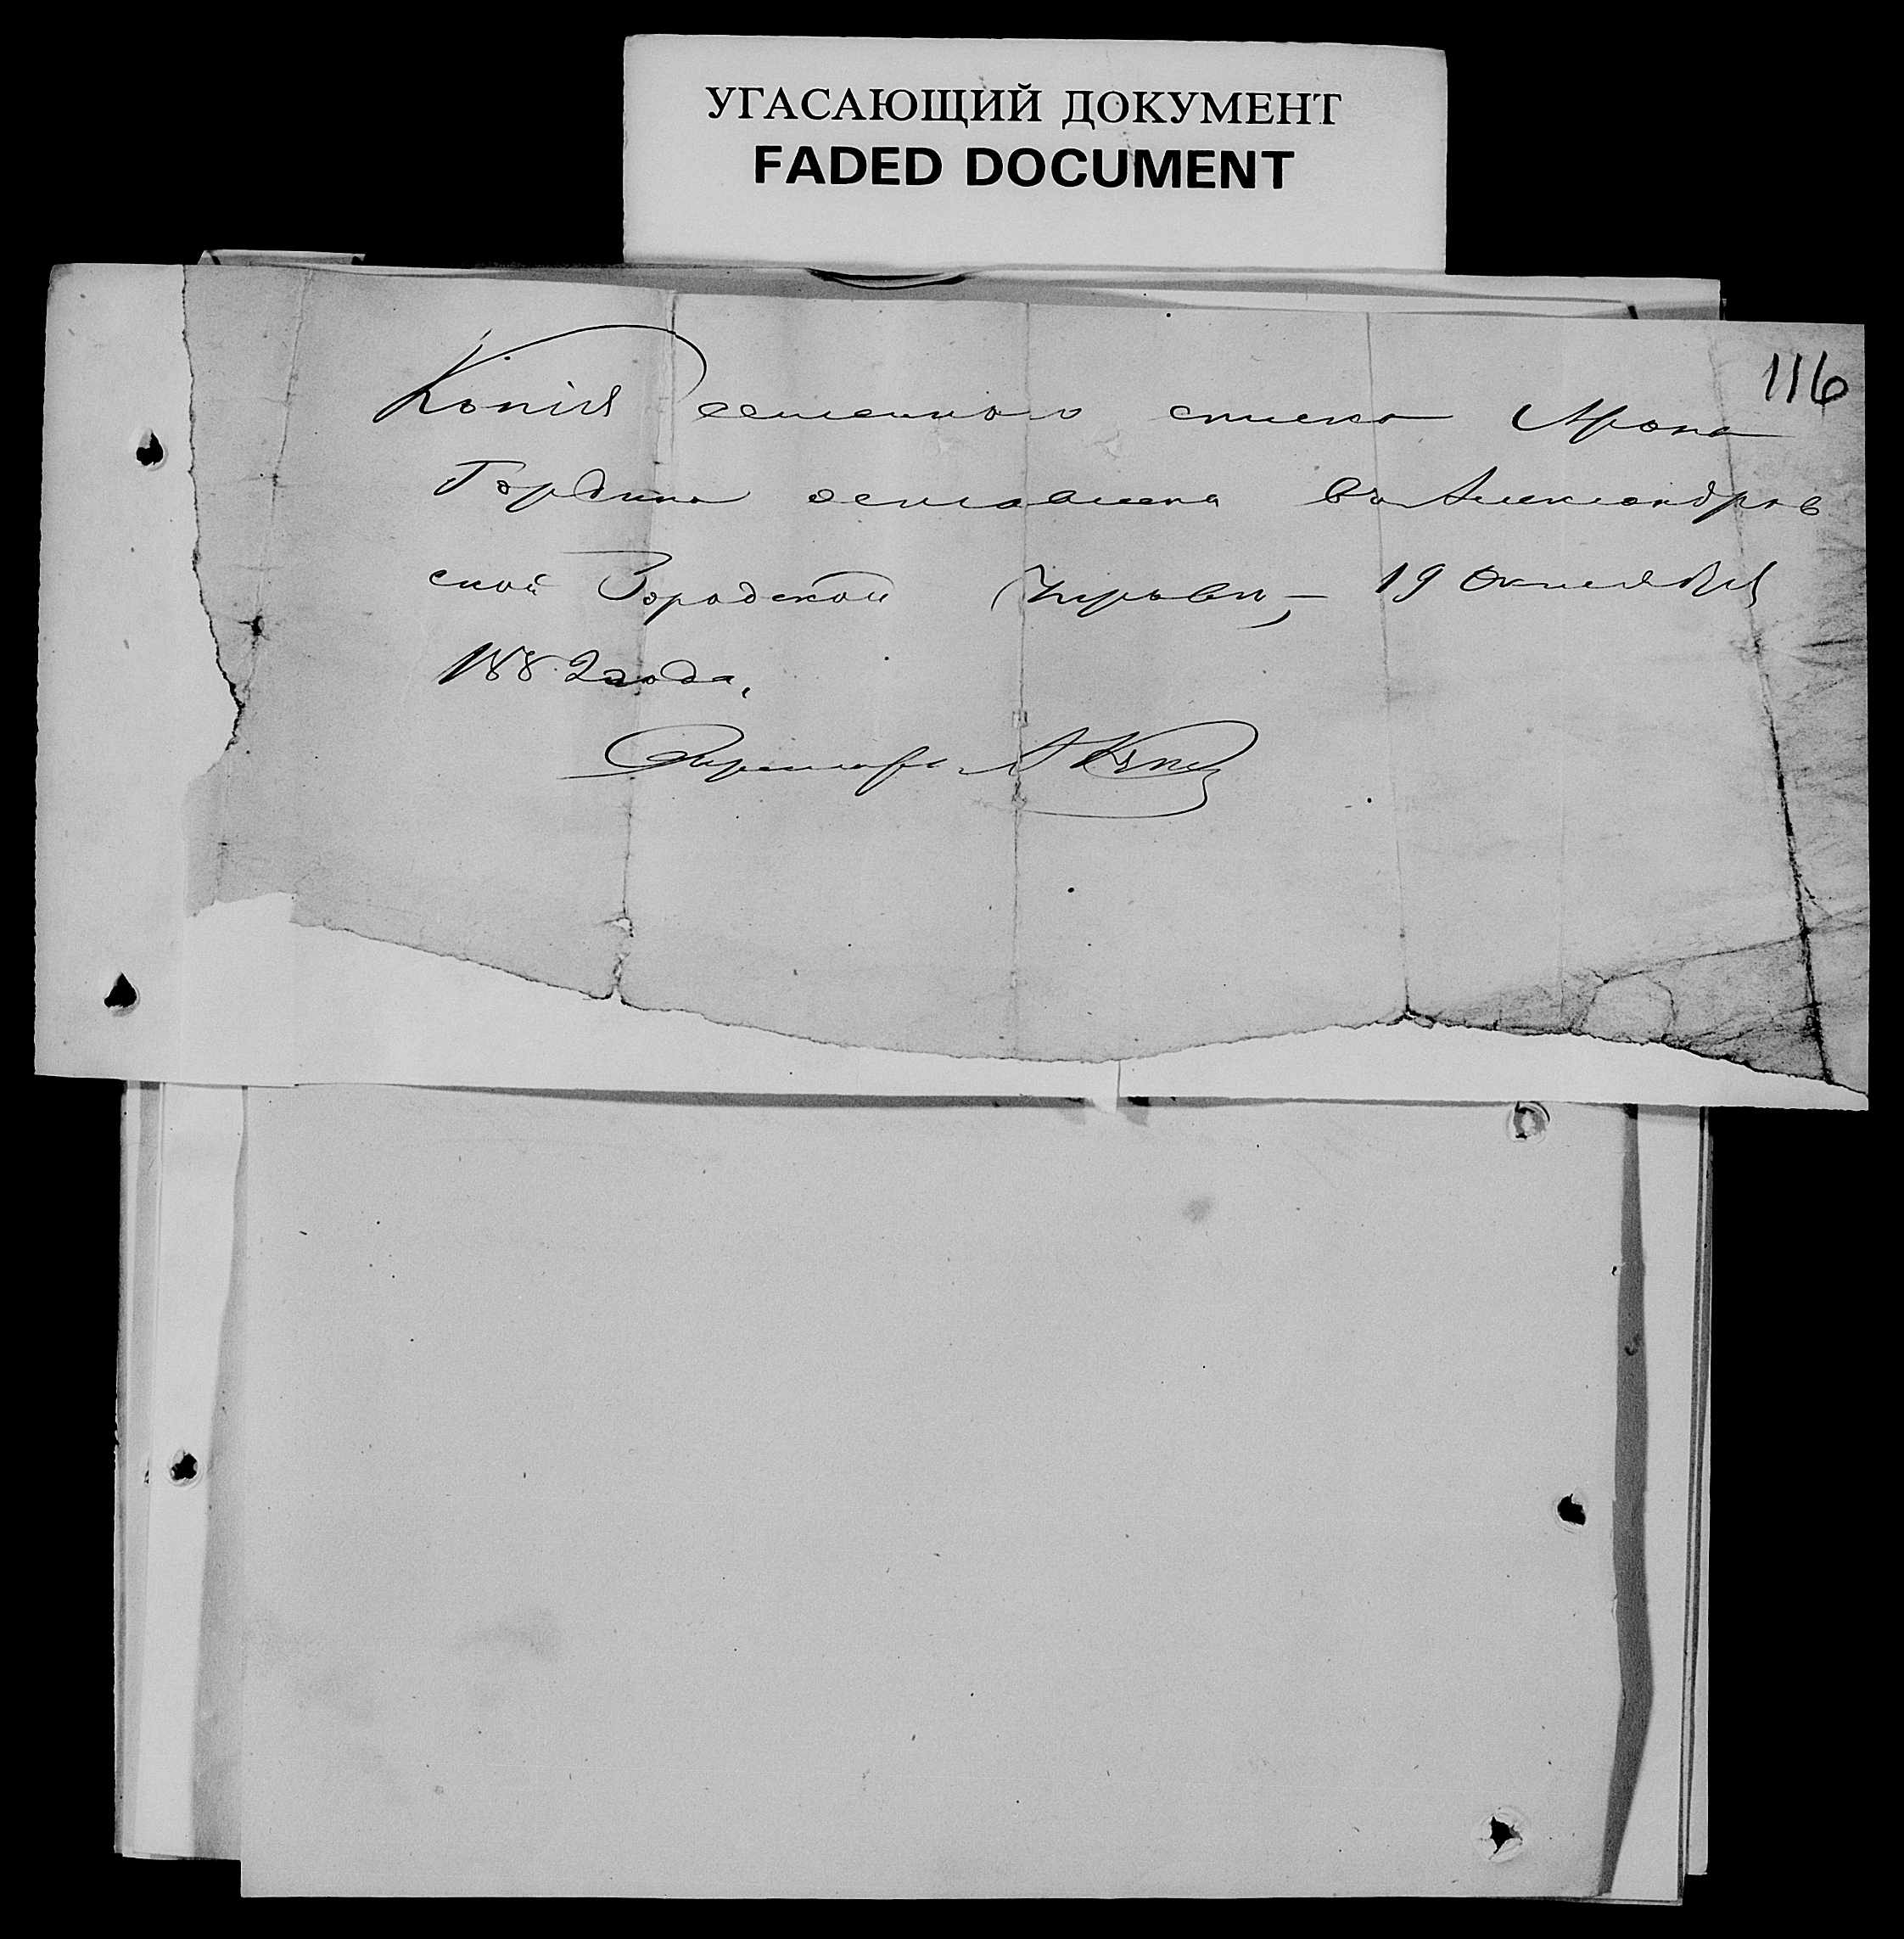 УГАСАЮЩИЙ ДОКУМЕНТ
FADED DOCUMENT
116
Копія семейнаго списка Арона
Гордина оставлена въ Александров
ской Городской Управѣ, – 19 Октября
1882 года.